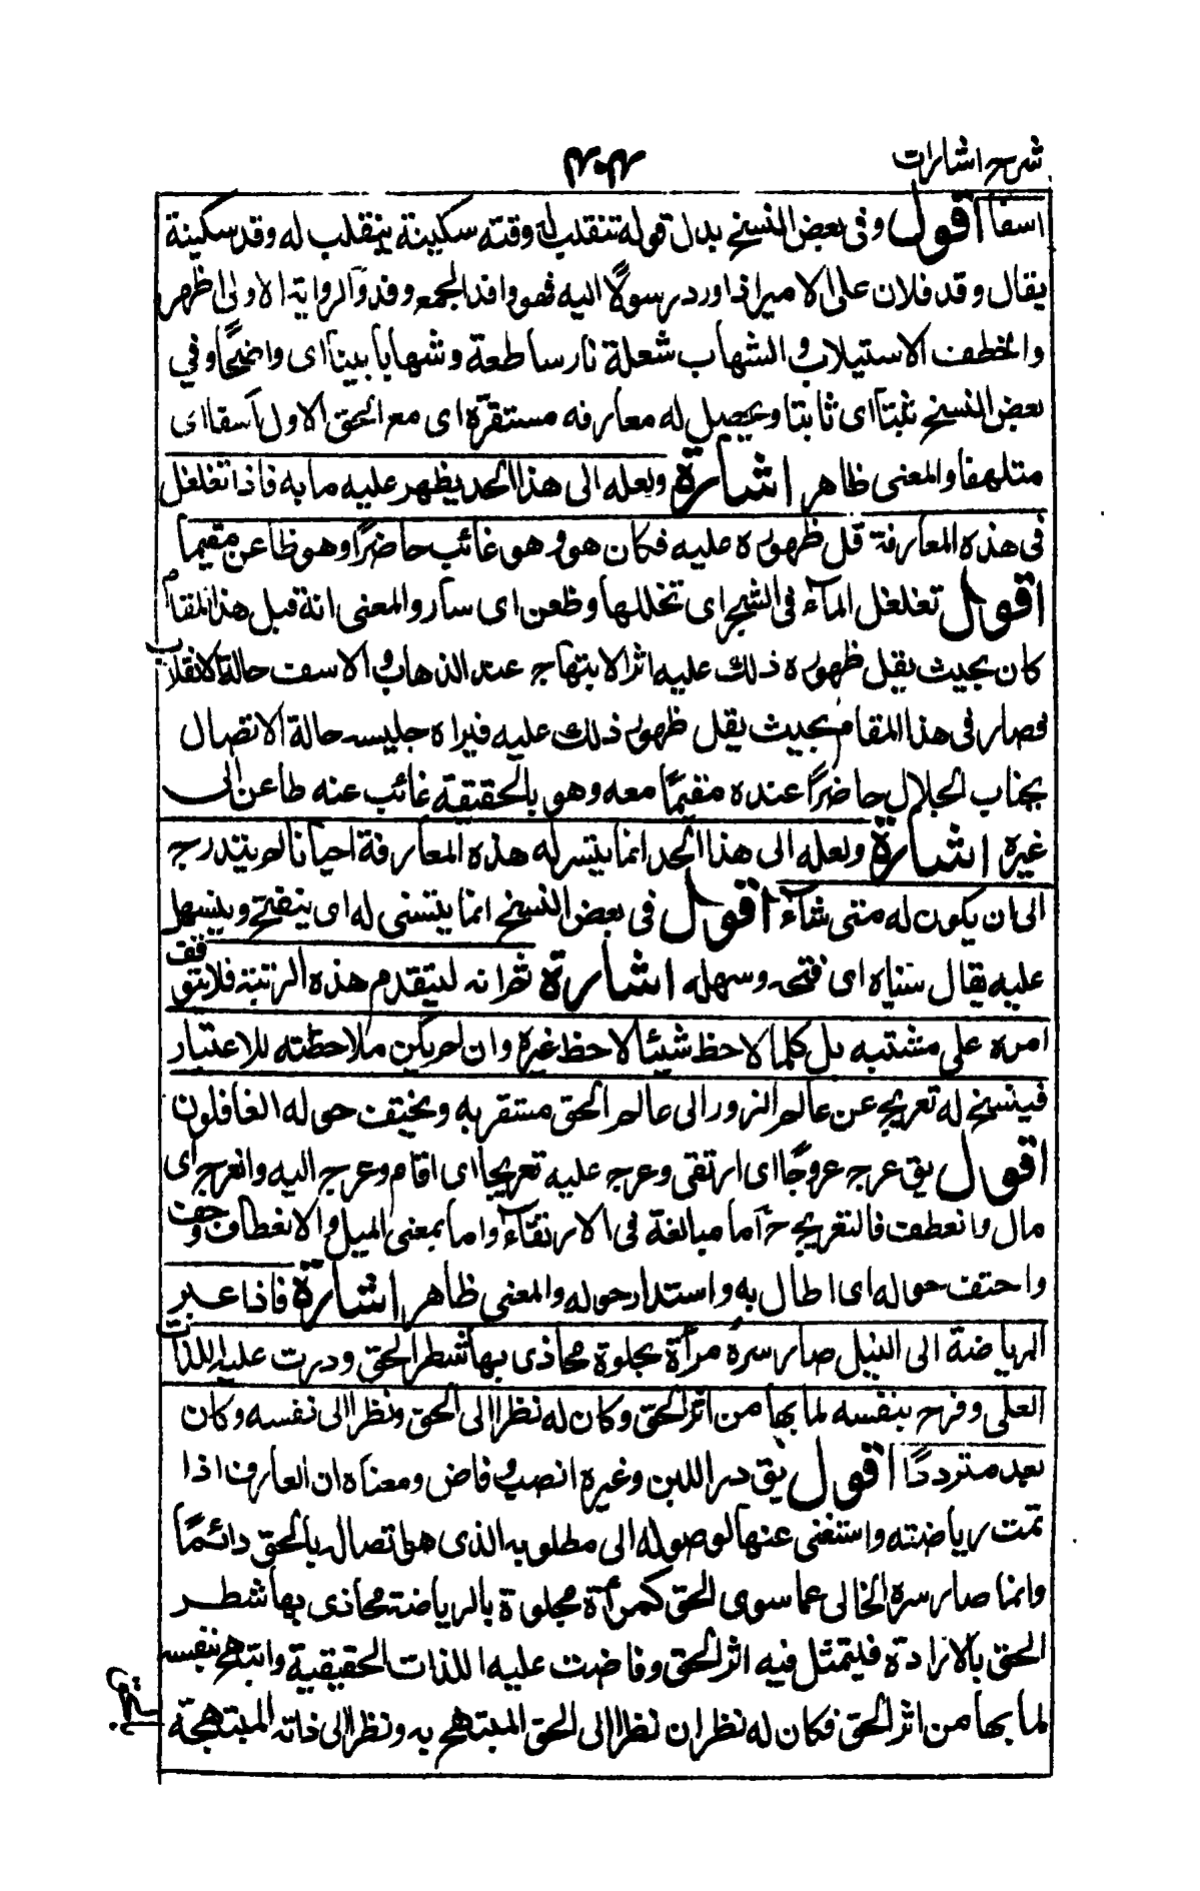 شرح اشارات
۴۰۴
اسفا اقول وفى بعض النسخ بدل قوله تنقلب له وقته سكينة ينقلب له وفد سكينة
يقال وفد فلان على الامير اذا ورد رسولًا اليه فهو وافد الجمع وفد والرواية الاولى اظهر
والخطف الاستيلاب والشهاب شعلة نار ساطعة وشهابا بينا اى واضحًا وفي
بعض النسخ ثبتا اى ثابتا وتحصيل له معارفه مستقرّة اى مع الحق الاول اسفا اى
متلهفا والمعنى ظاهر اشارة ولعله الى هذا الحد يظهر عليه ما به فاذا تغلغل
فى هذه المعارفة قل ظهوره عليه فكان هو وهو غائب حاضرًا وهو ظاعن مقيما
اقول تغلغل الماء فى الشجر اى تخللها وظعن اى سار والمعنى انه قبل هذا المقام
كان بحيث يقل ظهوره ذلك عليه اثر الابتهاج عند الذهاب والاسف حالة الانقلاب
فصار فى هذا المقام بحيث يقل ظهور ذلك عليه فيراه جليسه حالة الاتصال
بجناب الجلال حاضرًا عنده مقيمًا معه وهو بالحقيقة غائب عنه ظاعن الى
غيره اشارة ولعله الى هذا الحد انما يتيسر له هذه المعارفة احيانا ثم يتدرج
الى ان يكون له متى شاء اقول فى بعض النسخ انما يتسنى له اى ينفتح ويتسهل
عليه يقال سناه اى فتحه وسهله اشارة ثم انه ليتقدم هذه الرتبة فلا يتوقف
امره على مشتبه بل كلما لاحظ شيئا لاحظ غيره وان لم يكن ملاحظته للاعتبار
فينسخ له تعريج عن عالم الزور الى عالم الحق مستقر به ويحتف حوله الغافلون
اقول يق عرج عروجًا اى ارتقى وعرج عليه تعريجا اى اقام وعرج اليه وانعرج اى
مال وانعطف فالتعريج ح اما مبالغة فى الارتقاء واما بمعنى الميل والانعطاف وحف
واحتف حوله اى اطال به واستدار حوله والمعنى ظاهر اشارة فاذا عبر
الرياضة الى النيل صار سره مرأة مجلوة محاذى بها شطر الحق ودرت عليه اللذات
العلى وفرح بنفسه لما بها من اثر الحق وكان له نظر الى الحق ونظر الى نفسه وكان
بعد مترددًا اقول يق در اللبن وغيره انصب وفاض ومعناه ان العارف اذا
تمت رياضته واستغنى عنها لوصوله الى مطلوبه الذى هو اتصال بالحق دائمًا
وانما صار سره الخالى عما سوى الحق كمرأة مجلوة بالرياضة محاذى بها شطر
الحق بالارادة فليتمثل فيه اثر الحق وفاضت عليه اللذات الحقيقية وابتهج بنفسه
لما بها من اثر الحق فكان له نظران نظر الى الحق المبتهج به ونظر الى ذاته المبتهجة